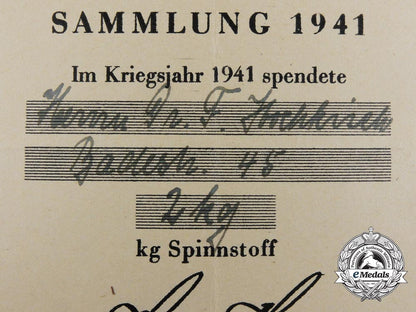 SAMMLUNG 1941
Im Kriegsjahr 1941 spendete
Herrn Dr. F.
Badestr. 45
2 kg
kg Spinnstoff
eMedals